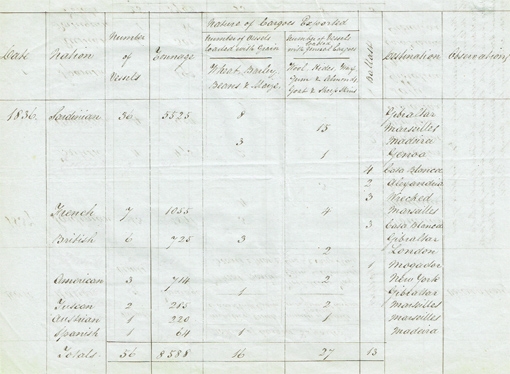 Nature of Cargoes Exported
Date Nation Number of Vessels Tonnage Number of Vessels loaded with Grain Number of Vessels loaded with general Cargoes Ballast Destination Observations
Wheat, Barley, Beans & Maize. Wool, Hides, Wax, Gum & Almonds, Goat & Sheep Skins
1836. Sardinian 36 5525 8 Gibraltar
15 Marseilles
3 Madeira
1 Genoa
4 Casa blanca
2 Alexandria
3 Wrecked
French 7 1055 4 Marseilles
3 Casa blanca
British 6 725 3 Gibraltar
2 London
1 Mogador
American 3 714 2 New York
1 Gibraltar
Tuscan 2 215 2 Marseilles
Austrian 1 220 1 Marseilles
Spanish 1 64 1 Madeira
Totals 56 8588 16 27 13